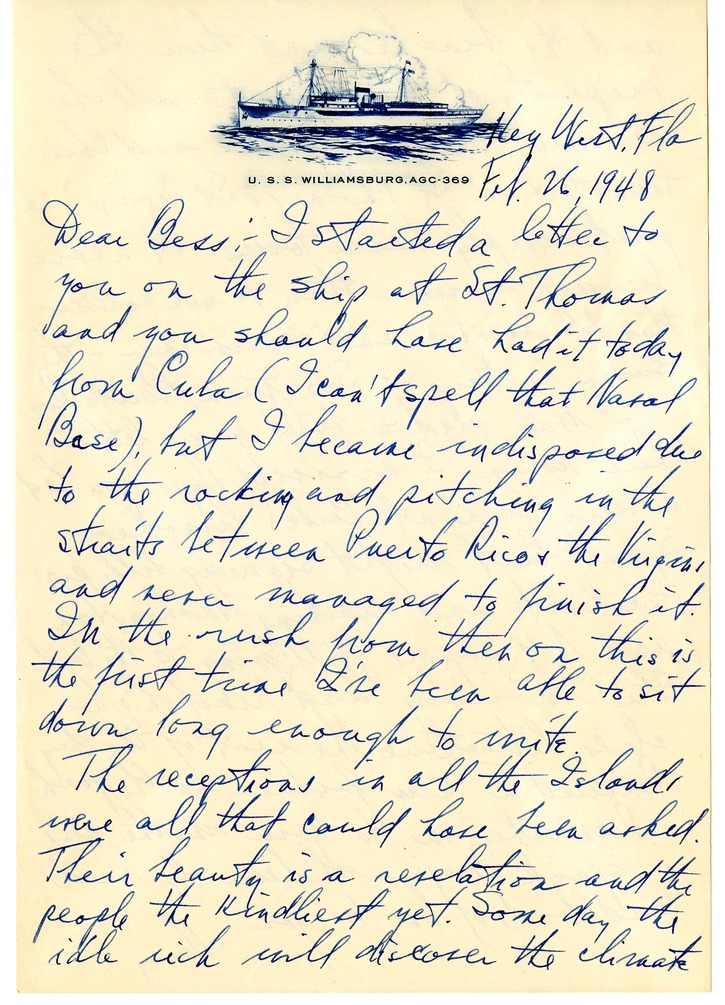 U. S. S. WILLIAMSBURG, AGC-369
Key West, Fla
Feb. 26, 1948
Dear Bess:- I started a letter to
you on the ship at St. Thomas
and you should have had it today
from Cuba (I can't spell that Naval
Base), but I became indisposed due
to the rocking and pitching in the
straits between Puerto Rico & the Virgins
and never managed to finish it.
In the rush from then on this is
the first time I've been able to sit
down long enough to write.
The receptions in all the Islands
were all that could have been asked.
Their beauty is a revelation and the
people the kindliest yet. Some day the
idle rich will discover the climate